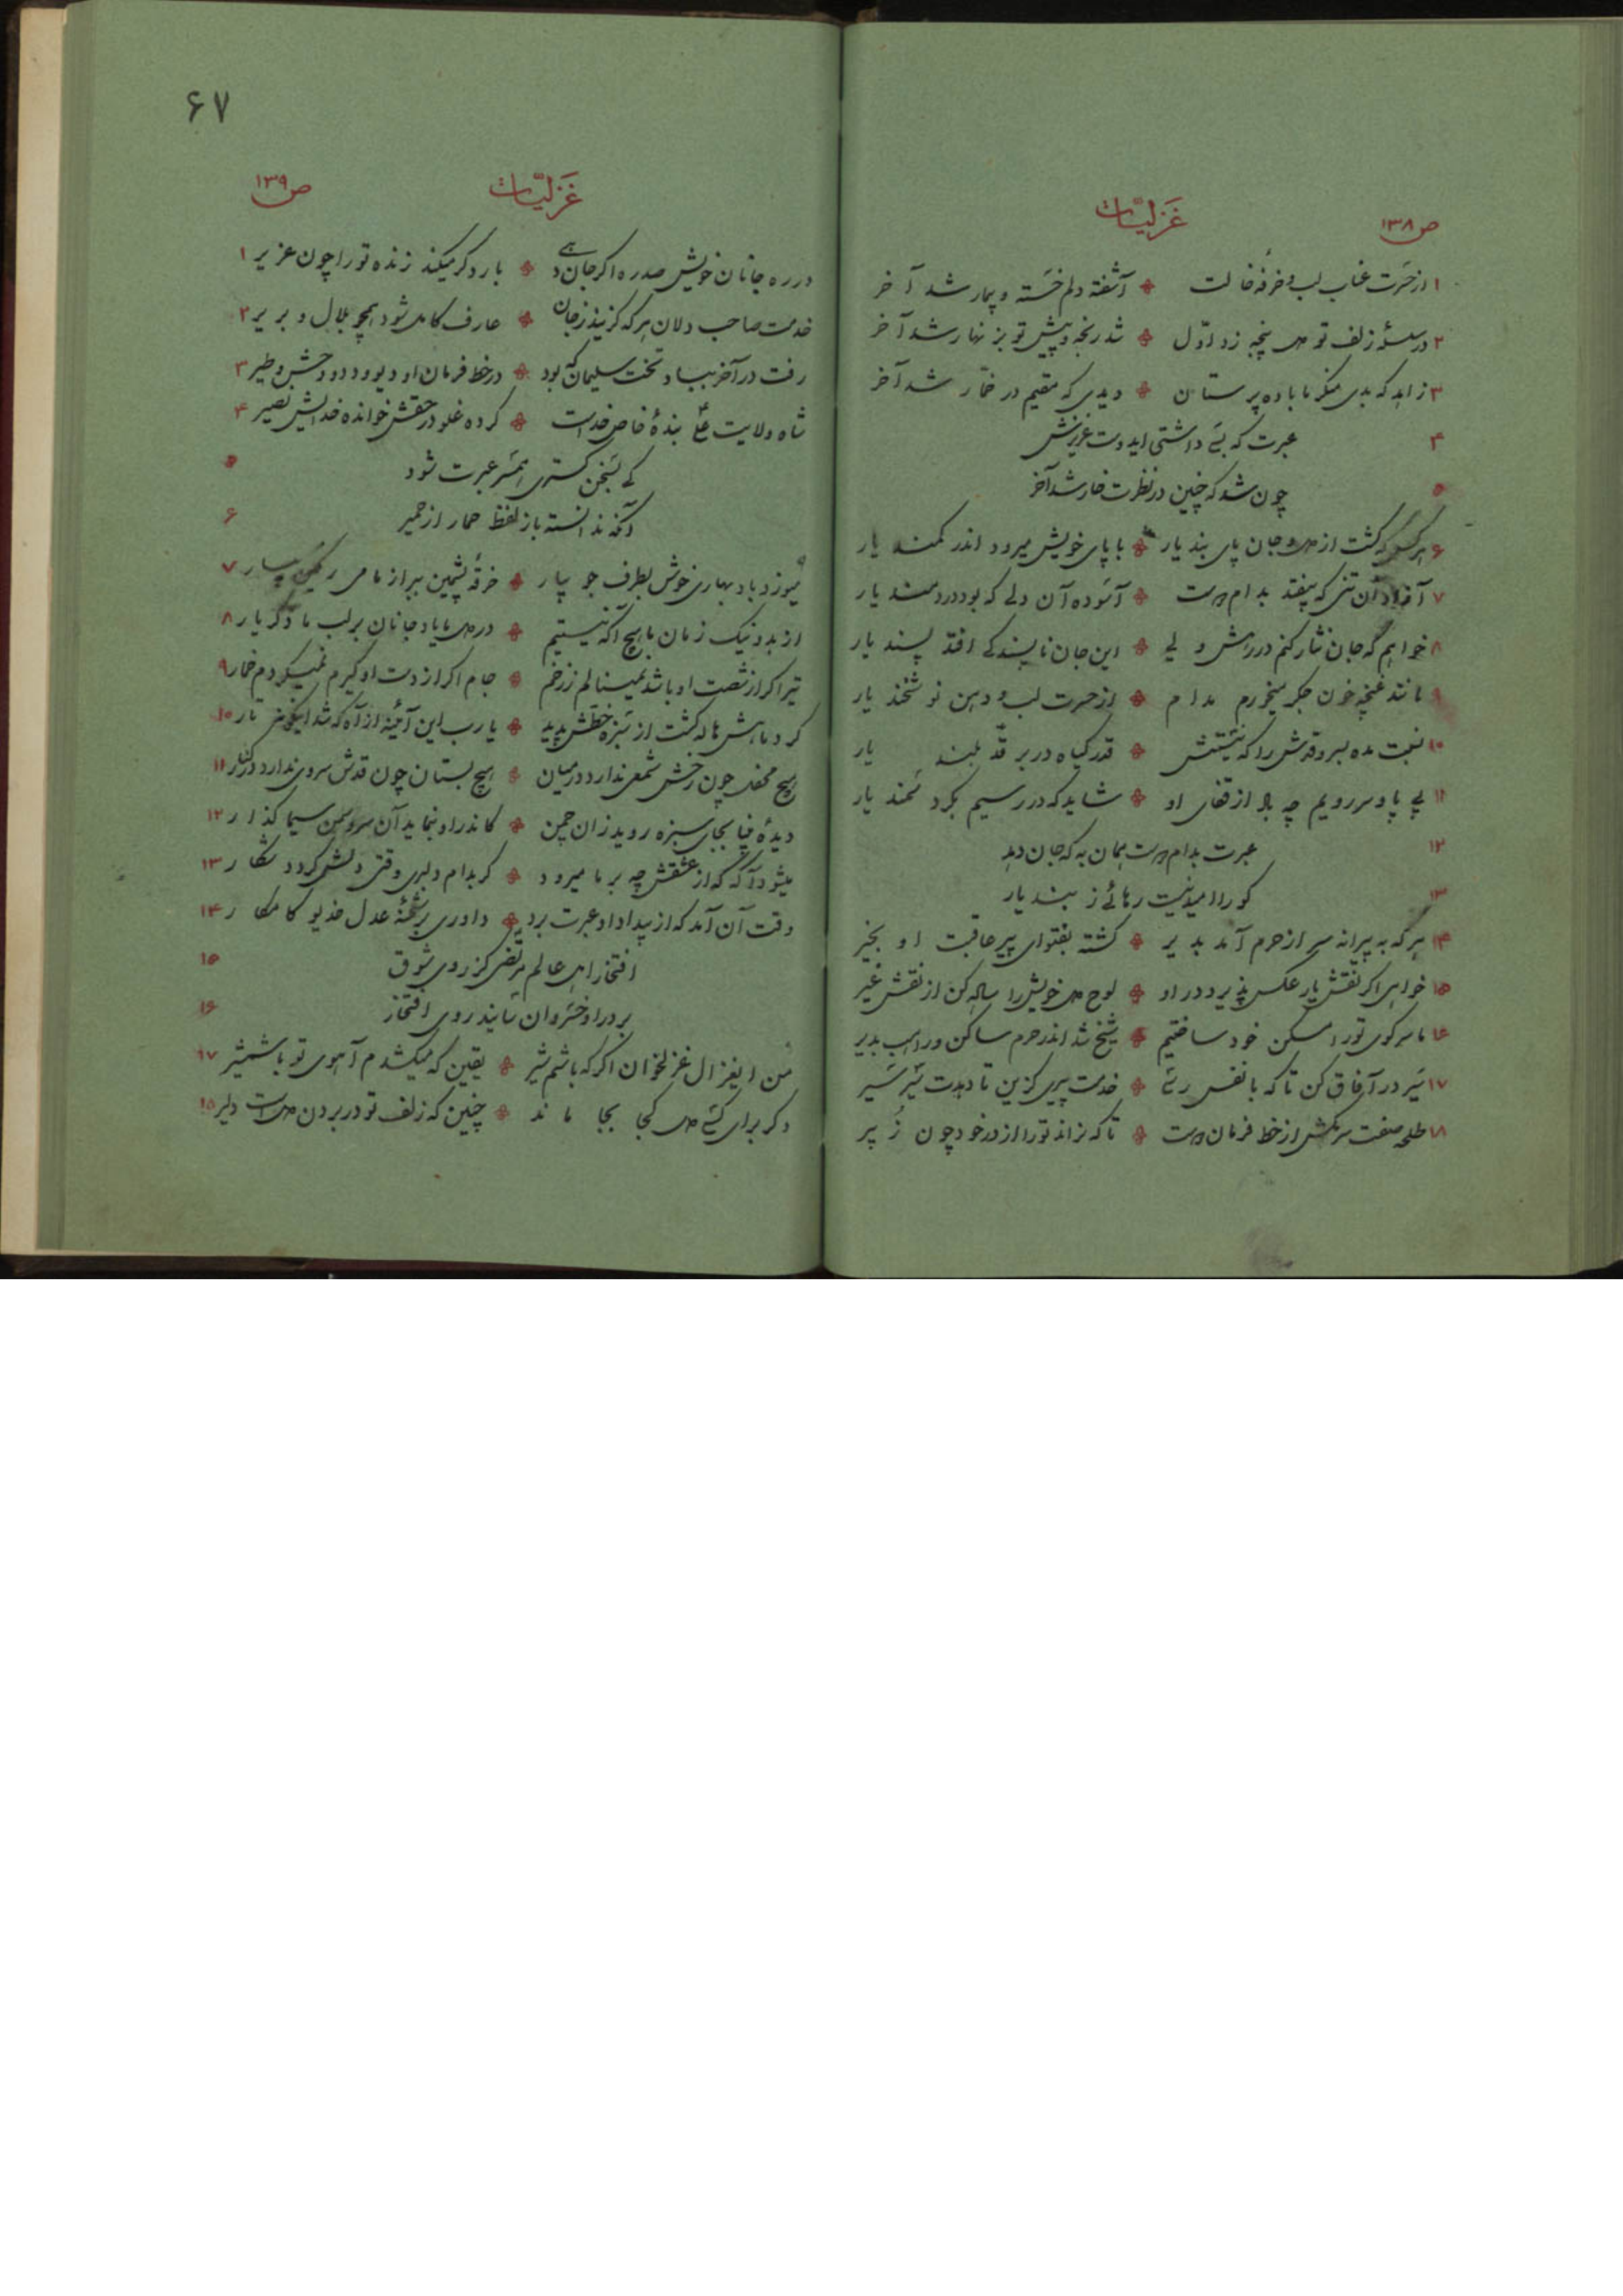 ص۱۳۸ غَزلیّات
۱ از حَسرت عناب لب و خرفهٔ خالت آشفته دلم خسته و بیمار شد آخر
۲ در سلسلهٔ زلف تو دل پنجه زد اوّل شد رنجه و پیش تو بزنهار شد آخر
۳ زاهد که بدی منکر ما باده پرستان دیدی که مقیم در خمّار شد آخر
۴ عبرت که بسی داشتی ایدوست عزیزش
۵ چون شد که چنین در نظرت خار شد آخر
۶ هر کس که گشت از دل و جان پای بند یار با پای خویش میرود اندر کمند یار
۷ آزاد آن تنی که بیفتد بدام دوست آسوده آن دلی که بود دردمند یار
۸ خواهم که جان نثار کنم در رهش ولی این جان ناپسند کی افتد پسند یار
۹ مانند غنچه خون جگر میخورم مدام از حسرت لب و دهن نوشخند یار
۱۰ نسبت مده بسرو قدش را که نیستش قدر گیاه در بر قدّ بلند یار
۱۱ بی پا و سر رویم چه باد از قفای او شاید که در رسیم بگرد سمند یار
۱۲ عبرت بدام دوست همان به که جان دهد
۱۳ کو را امید نیست رهائی ز بند یار
۱۴ هر که به پیرانه سر از حرم آمد بدیر گشته بفتوای پیر عاقبت او بخیر
۱۵ خواهی اگر نقش یار عکس پذیرد در او لوح دل خویش را ساده کن از نقش غیر
۱۶ ما سر کوی تو را مسکن خود ساختیم شیخ شد اندر حرم ساکن و راهب بدیر
۱۷ سَیر در آفاق کن تا که بانفس رسی خدمت پیری گزین تا دهدت سَیر سَیر
۱۸ طلحه صفت سر مکش از خط فرمان دوست تا که نراند تو را از در خود چون زُبیر
۶۷
غَزلیّات ص۱۳۹
در ره جانان خویش صد ره اگر جان دهی بار دگر میکند زنده تو را چون عزیر ۱
خدمت صاحب دلان هر که گزیند ز جان عارف کامل شود همچو بلال و بریر ۲
رفت در آخر بباد تخت سلیمان که بود در خط فرمان او دیو و دد و وحش و طیر ۳
شاه ولایت علی بندهٔ خاص خداست کرده غلو در حقش خوانده خدایش نصیر ۴
کی بسخن گستری همسر عبرت شود ۵
آنکه ندانسته باز لفظ حمار از حمیر ۶
میوزد باد بهاری خوش بطرف جویبار خرقهٔ پشمین ببر از ما می رنگین بیار ۷
از بد و نیک زمان با هیچ آگه نیستیم در دل ما یاد جانان بر لب ما ذکر یار ۸
تیر اگر از شصت او باشد نمینالم ز زخم جام اگر از دست او گیرم نمیگردم خمار ۹
گرد ماهش هاله گشت از سَبزه خطش پدید یارب این آئینه از آه که شد اینگونه تار ۱۰
هیچ محفل چون رخش شمعی ندارد در میان هیچ بستان چون قدش سروی ندارد در کنار ۱۱
دیدهٔ بینا بجای سبزه روید زان چمن کاندر او بنماید آن سرو سمن سیما گذار ۱۲
میشود آگه که از عشقش چه بر ما میرود گر بدام دلبری وقتی دلش گردد شکار ۱۳
وقت آن آمد که از بیداد او عبرت برد داوری بر شحنهٔ عدل خدیو کامکار ۱۴
افتخار اهل عالم مرتضی کز روی شوق ۱۵
بر در او خسروان سایند روی افتخار ۱۶
من ایغزال غزلخوان اگر که باشم شیر یقین که میکشدم آهوی تو با شمشیر ۱۷
دگر برای کسی دل کجا بجا ماند چنین که زلف تو در بردن دل است دلیر ۱۸